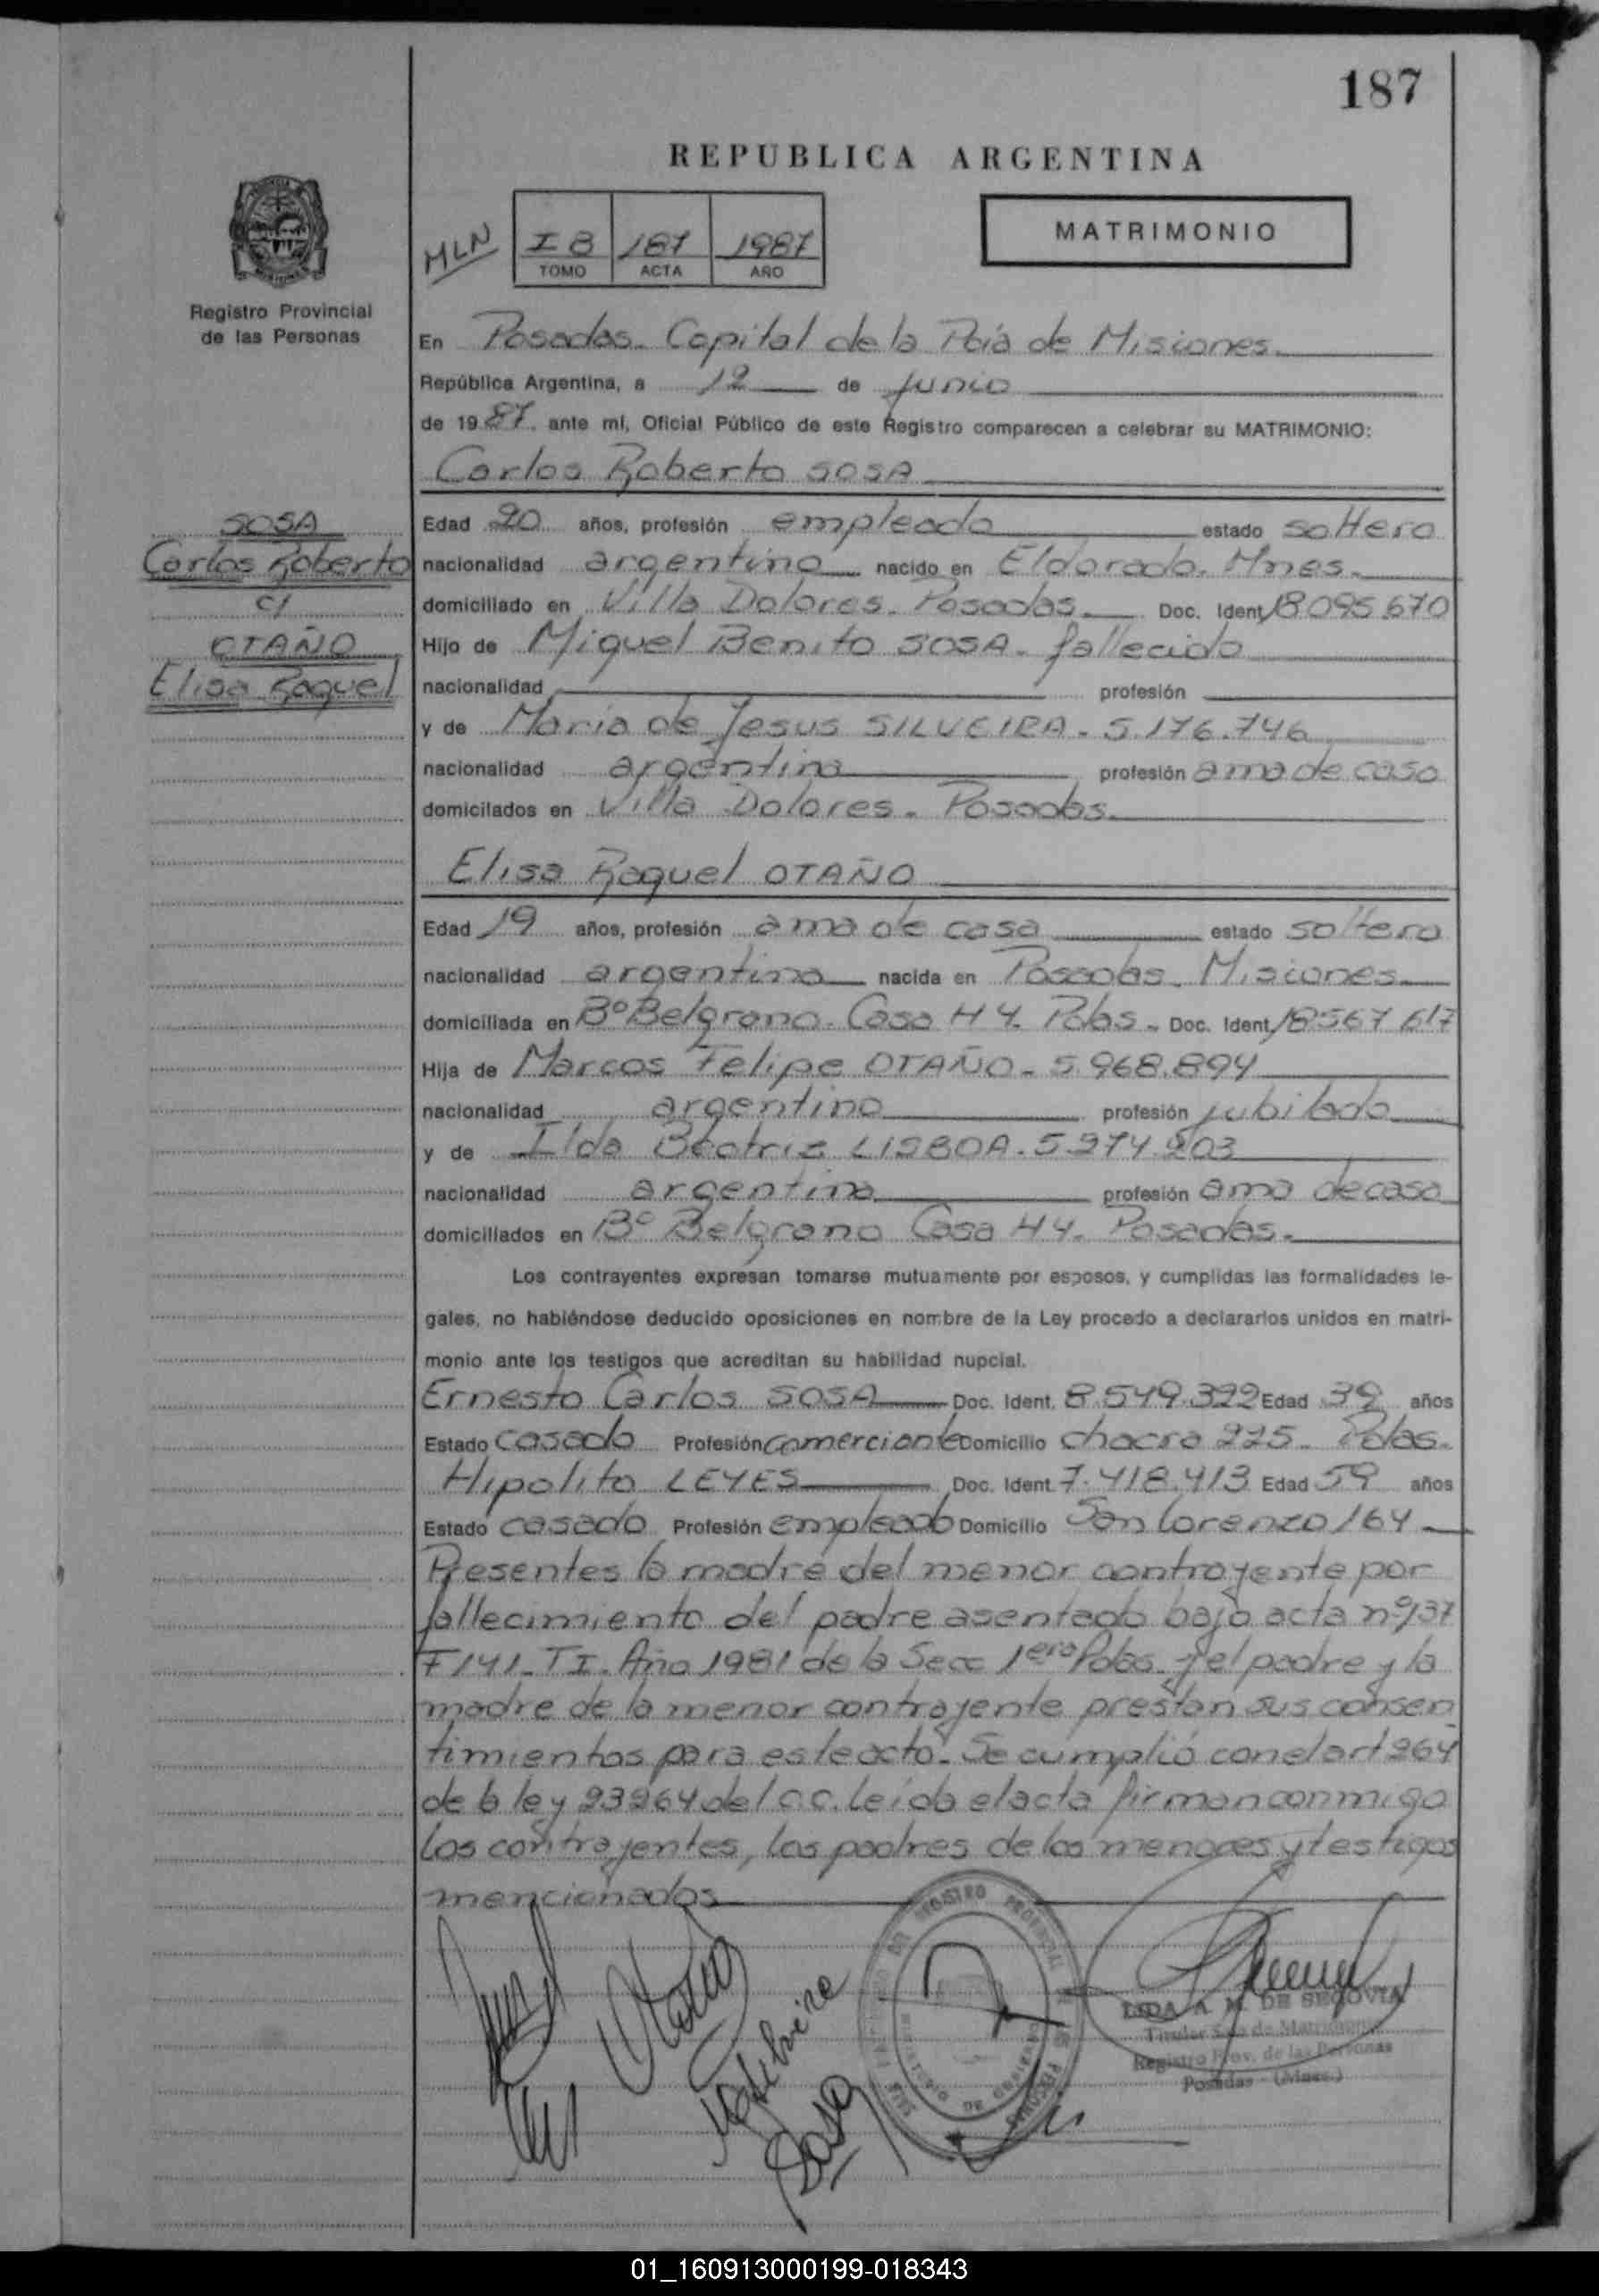 187
REPUBLICA ARGENTINA
MLN
I B 187 1987
TOMO ACTA AÑO
MATRIMONIO
Registro Provincial
de las Personas
En Posadas. Capital de la Pcia de Misiones
República Argentina, a 12 de junio
de 1987 ante mí, Oficial Público de este Registro comparecen a celebrar su MATRIMONIO:
Carlos Roberto SOSA
SOSA
Carlos Roberto
c/
OTAÑO
Elisa Raquel
Edad 20 años, profesión empleado estado soltero
nacionalidad argentino nacido en Eldorado. Mnes.
domiciliado en Villa Dolores. Posadas. Doc. Ident. 18.095.670
Hijo de Miguel Benito SOSA. fallecido
nacionalidad profesión
y de Maria de Jesus SILVEIRA. 5.176.746
nacionalidad argentina profesión ama de casa
domicilados en Villa Dolores. Posadas.
Elisa Raquel OTAÑO
Edad 19 años, profesión ama de casa estado soltera
nacionalidad argentina nacida en Posadas. Misiones
domiciliada en Bº Belgrano. Casa H 4. Pdas. Doc. Ident. 18567617
Hija de Marcos Felipe OTAÑO. 5.968.894
nacionalidad argentino profesión jubilado
y de Ilda Beatriz LISBOA. 5.274.203
nacionalidad argentina profesión ama de casa
domiciliados en Bº Belgrano Casa H 4. Posadas.
Los contrayentes expresan tomarse mutuamente por esposos, y cumplidas las formalidades le-
gales, no habiéndose deducido oposiciones en nombre de la Ley procedo a declararlos unidos en matri-
monio ante los testigos que acreditan su habilidad nupcial.
Ernesto Carlos SOSA Doc. Ident. 8.549.392 Edad 39 años
Estado casado Profesión comerciante Domicilio chacra 225. Pdas.
Hipolito LEYES Doc. Ident. 7.418.413 Edad 59 años
Estado casado Profesión empleado Domicilio San Lorenzo 164
Presentes la madre del menor contrayente por
fallecimiento del padre asentado bajo acta nº 137
F 141. T I. Año 1981 de la Secc 1era Pdas. y el padre y la
madre de la menor contrayente prestan sus consen
timientos para este acto. Se cumplió con el art 264
de la ley 23264 del C.C. Leída el acta firman conmigo
los contrayentes, los padres de los menores y testigos
mencionados
Otaño
Silveira
Sosa
LIDA A. M. DE SEGOVIA
Titular Sec. de Matrimonio
Registro Prov. de las Personas
Posadas - (Mnes.)
01_160913000199-018343